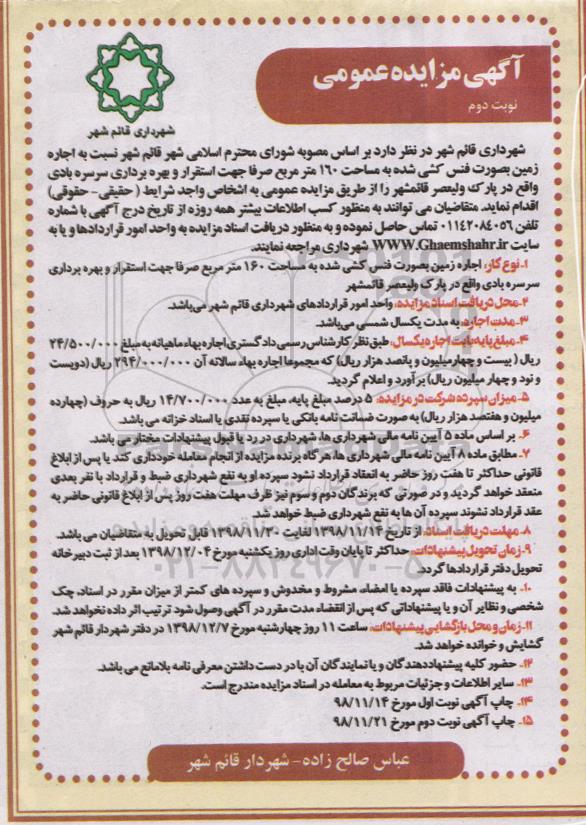 آگهی مزایده عمومی
نوبت دوم
شهرداری قائم شهر
شهرداری قائم شهر در نظر دارد بر اساس مصوبه شورای محترم اسلامی شهر قائم شهر نسبت به اجاره
زمین بصورت فنس کشی شده به مساحت ۱۶۰ متر مربع صرفا جهت استقرار و بهره برداری سرسره بادی
واقع در پارک ولیعصر قائمشهر را از طریق مزایده عمومی به اشخاص واجد شرایط (حقیقی- حقوقی)
اقدام نماید. متقاضیان می توانند به منظور کسب اطلاعات بیشتر همه روزه از تاریخ درج آگهی با شماره
تلفن ۰۱۱۴۲۰۸۴۰۵۶ تماس حاصل نموده و به منظور دریافت اسناد مزایده به واحد امور قراردادها و یا به
سایت WWW.Ghaemshahr.ir شهرداری مراجعه نمایند.
۱- نوع کار: اجاره زمین بصورت فنس کشی شده به مساحت ۱۶۰ متر مربع صرفا جهت استقرار و بهره برداری
سرسره بادی واقع در پارک ولیعصر قائمشهر
۲- محل دریافت اسناد مزایده: واحد امور قراردادهای شهرداری قائم شهر می‌باشد.
۳- مدت اجاره: به مدت یکسال شمسی می‌باشد.
۴- مبلغ پایه بابت اجاره یکسال: طبق نظر کارشناس رسمی دادگستری اجاره بهاء ماهیانه به مبلغ ۲۴/۵۰۰/۰۰۰
ریال (بیست و چهار میلیون و پانصد هزار ریال) که مجموعا اجاره بهاء سالانه آن ۲۹۴/۰۰۰/۰۰۰ ریال (دویست
و نود و چهار میلیون ریال) برآورد و اعلام گردید.
۵- میزان سپرده شرکت در مزایده: ۵ درصد مبلغ پایه، مبلغ به عدد ۱۴/۷۰۰/۰۰۰ ریال به حروف (چهارده
میلیون و هفتصد هزار ریال) به صورت ضمانت نامه بانکی یا سپرده نقدی یا اسناد خزانه می باشد.
۶- بر اساس ماده ۵ آیین نامه مالی شهرداری ها، شهرداری در رد یا قبول پیشنهادات مختار می باشد.
۷- مطابق ماده ۸ آیین نامه مالی شهرداری ها، هر گاه برنده مزایده از انجام معامله خودداری کند یا پس از ابلاغ
قانونی حداکثر تا هفت روز حاضر به انعقاد قرارداد نشود سپرده او به نفع شهرداری ضبط و قرارداد با نفر بعدی
منعقد خواهد گردید و در صورتی که برندگان دوم و سوم نیز ظرف مهلت هفت روز پس از ابلاغ قانونی حاضر به
عقد قرارداد نشوند سپرده آن ها به نفع شهرداری ضبط خواهد شد.
۸- مهلت دریافت اسناد: از تاریخ ۱۳۹۸/۱۱/۱۴ لغایت ۱۳۹۸/۱۱/۳۰ قابل تحویل به متقاضیان می باشد.
۹- زمان تحویل پیشنهادات: حداکثر تا پایان وقت اداری روز یکشنبه مورخ ۱۳۹۸/۱۲/۰۴ بعد از ثبت دبیرخانه
تحویل دفتر قراردادها گردد.
۱۰- به پیشنهادات فاقد سپرده یا امضاء، مشروط و مخدوش و سپرده های کمتر از میزان مقرر در اسناد، چک
شخصی و نظایر آن و یا پیشنهاداتی که پس از انقضاء مدت مقرر در آگهی وصول شود ترتیب اثر داده نخواهد شد.
۱۱- زمان و محل بازگشایی پیشنهادات: ساعت ۱۱ روز چهارشنبه مورخ ۱۳۹۸/۱۲/۷ در دفتر شهردار قائم شهر
گشایش و خوانده خواهد شد.
۱۲- حضور کلیه پیشنهاددهندگان و یا نمایندگان آن با در دست داشتن معرفی نامه بلامانع می باشد.
۱۳- سایر اطلاعات و جزئیات مربوط به معامله در اسناد مزایده مندرج است.
۱۴- چاپ آگهی نوبت اول مورخ ۹۸/۱۱/۱۴
۱۵- چاپ آگهی نوبت دوم مورخ ۹۸/۱۱/۲۱
عباس صالح زاده - شهردار قائم شهر
۰۲۱-۸۸۳۴۹۶۷۰-۵